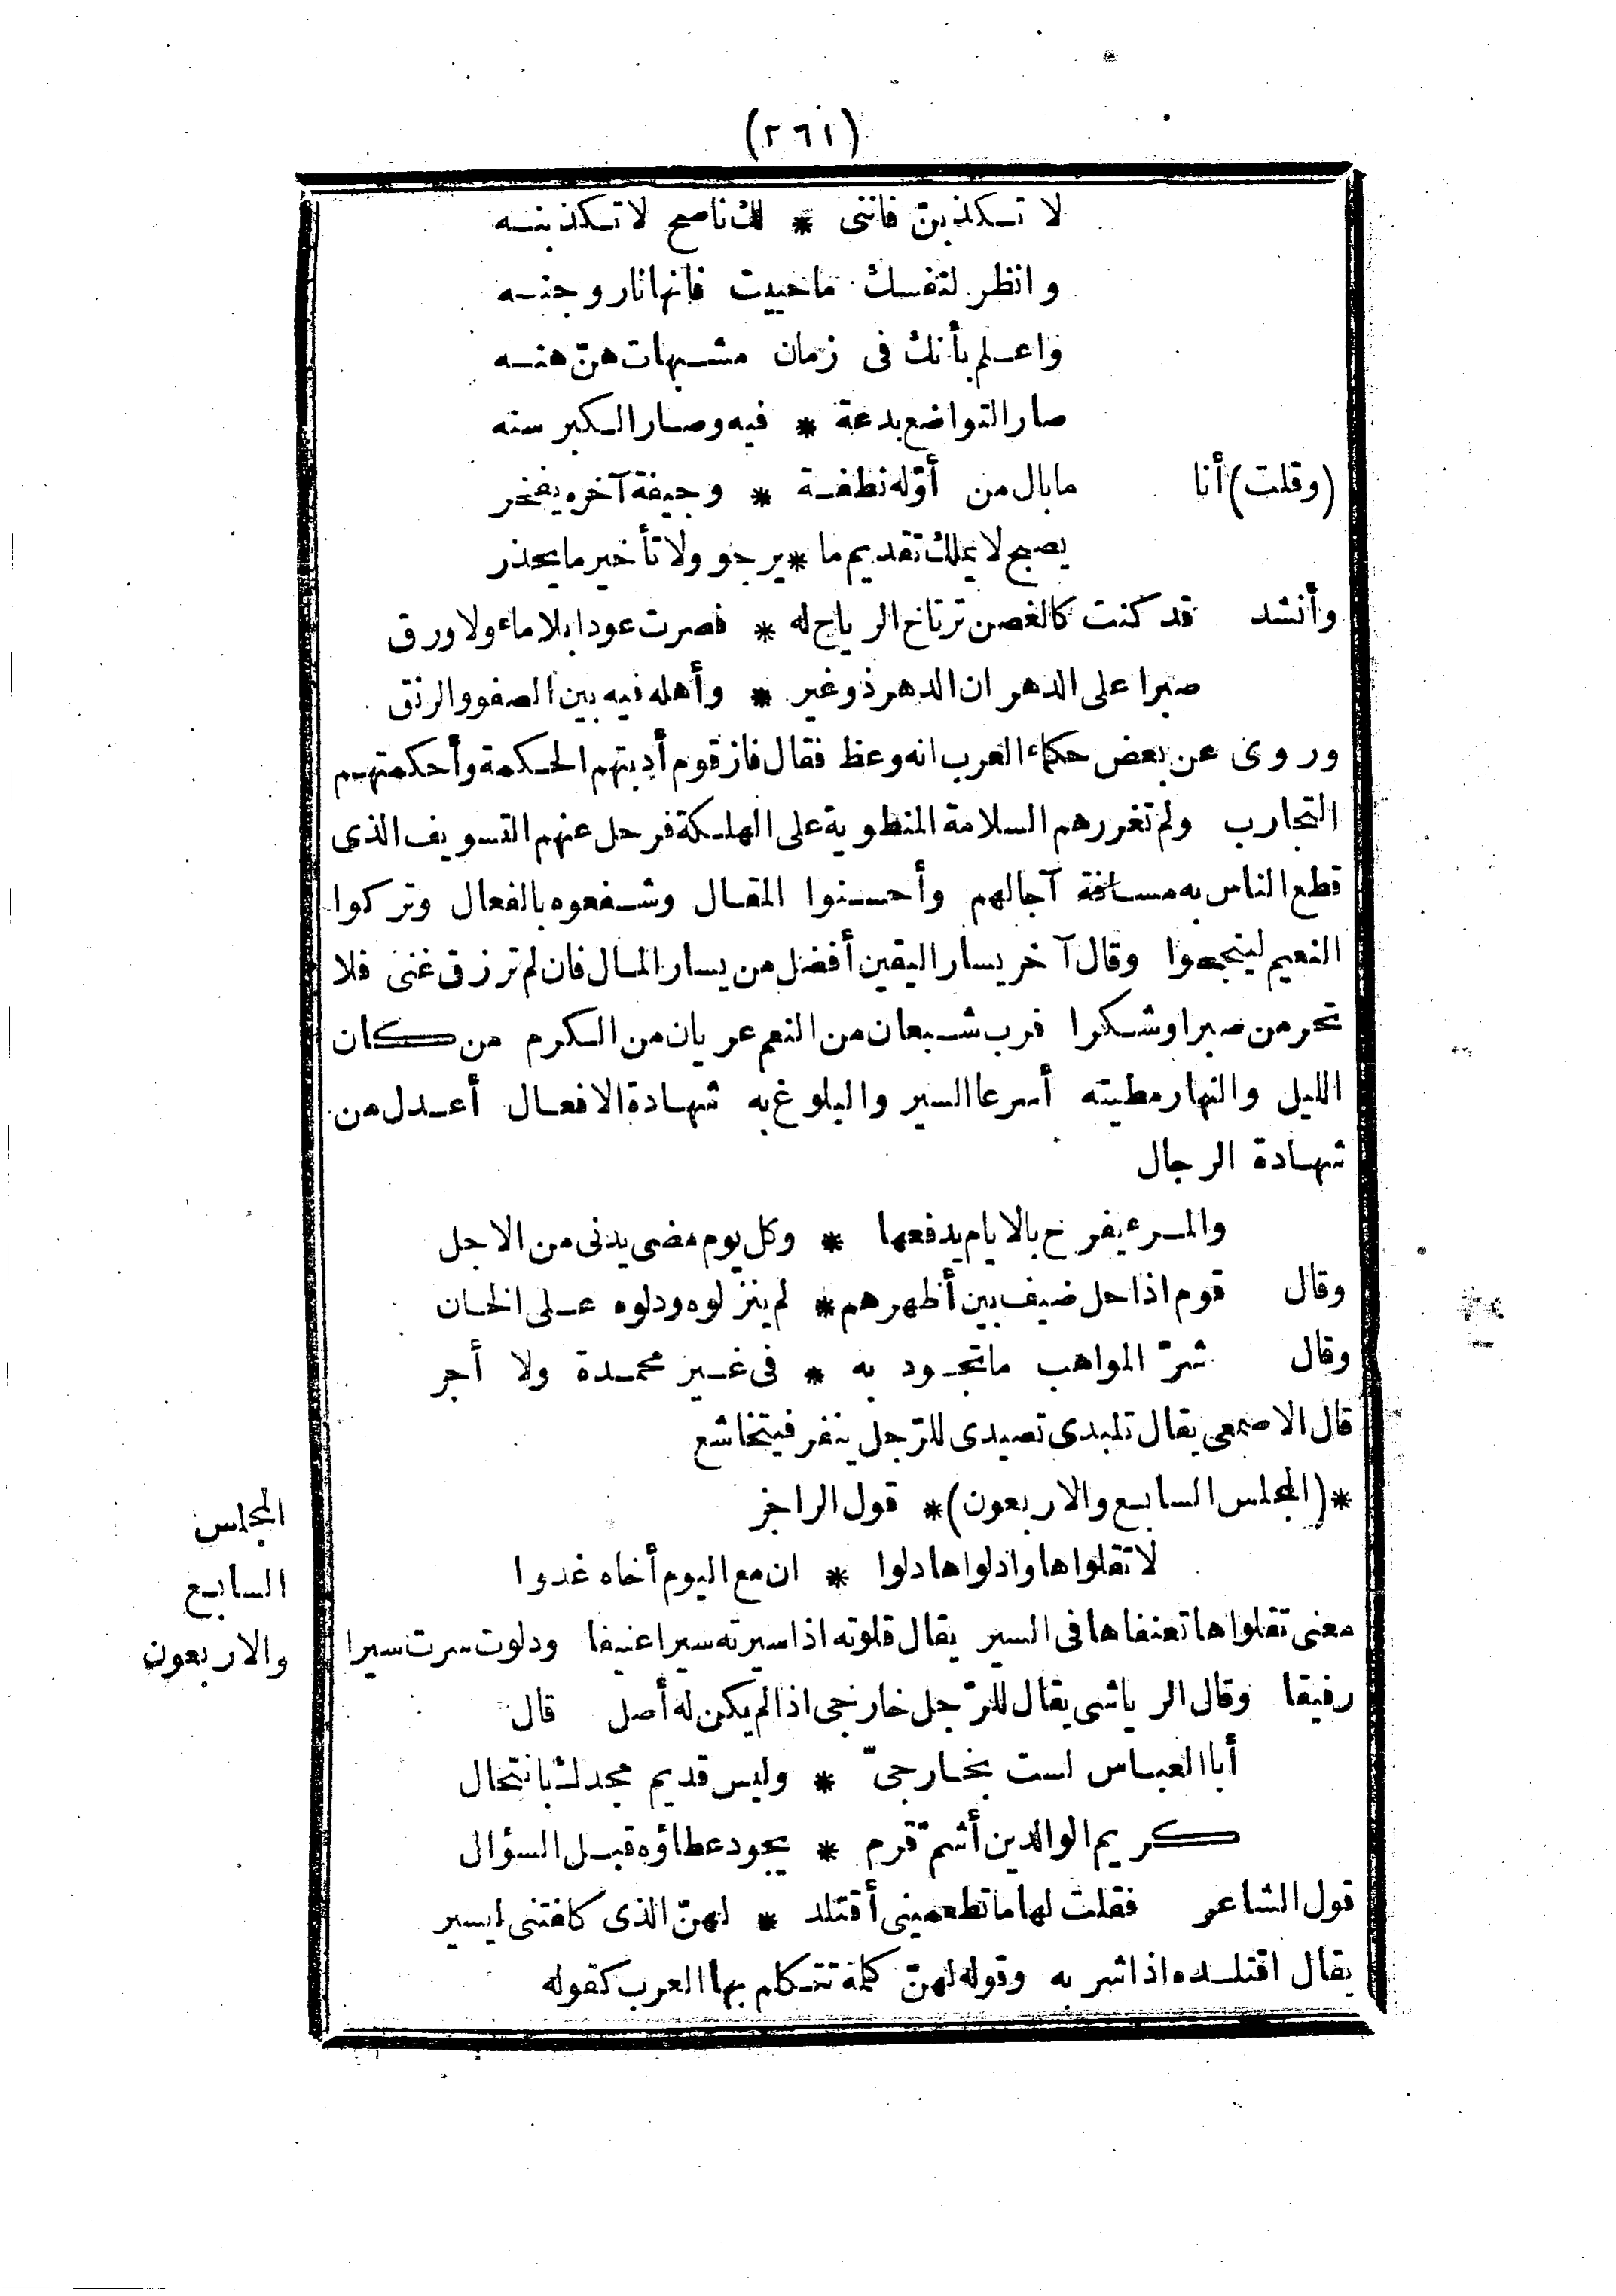 (٢٦١)
لا تكذبن فانني * لك ناصح لا تكذبنه
وانظر لنفسك ما حييت فانها نار وجنه
واعلم بأنك فى زمان مشبهات هنّ هنه
صار التواضع بدعة * فيه وصار الكبر سنه
(وقلت) أنا ما بال من أوّله نطفة * وجيفة آخره يفخر
يصبح لا يملك تقديم ما * يرجو ولا تأخير ما يحذر
وأنشد قد كنت كالغصن ترتاح الرياح له * فصرت عودا بلا ماء ولا ورق
صبرا على الدهر ان الدهر ذو غير * وأهله فيه بين الصفو والرنق
وروى عن بعض حكماء العرب انه وعظ فقال فاز قوم أدبتهم الحكمة وأحكمتهم
التجارب ولم تغررهم السلامة المنطوية على الهلكة فرحل عنهم التسويف الذى
قطع الناس به مسافة آجالهم وأحسنوا المقال وشفعوه بالفعال وتركوا
النعيم لينعموا وقال آخر يسار اليقين أفضل من يسار المال فان لم ترزق غنى فلا
تحرمن صبرا وشكرا فرب شبعان من النعم عريان من الكرم من كان
الليل والنهار مطيته أسرعا السير والبلوغ به شهادة الافعال أعدل من
شهادة الرجال
والمرء يفرح بالايام يدفعها * وكل يوم مضى يدنى من الاجل
وقال قوم اذا حل ضيف بين أظهرهم * لم ينزلوه ودلوه على الخان
وقال شرّ المواهب ما تجود به * فى غير محمدة ولا أجر
قال الاصمعى يقال تلبدى تصيدى للرّجل ينفر فيتخاشع
*(المجلس السابع والاربعون)* قول الراجز
المجلس
السابع
والاربعون
لا تقلواها وادلواها دلوا * ان مع اليوم أخاه غدوا
معنى تقلواها تعنفاها فى السير يقال قلوته اذا سيرته سيرا عنيفا ودلوت سرت سيرا
رفيقا وقال الرياشى يقال للرّجل خارجى اذا لم يكن له أصل قال
أبا العباس لست بخارجىّ * وليس قديم مجدك بانتحال
كريم الوالدين أشمّ قرم * يجود عطاؤه قبل السؤال
قول الشاعر فقلت لها ما تطعمينى أقتلد * لهنّ الذى كلفتنى ليسير
يقال اقتلده اذا شربه وقوله لهنّ كلمة تتكلم بها العرب كقوله